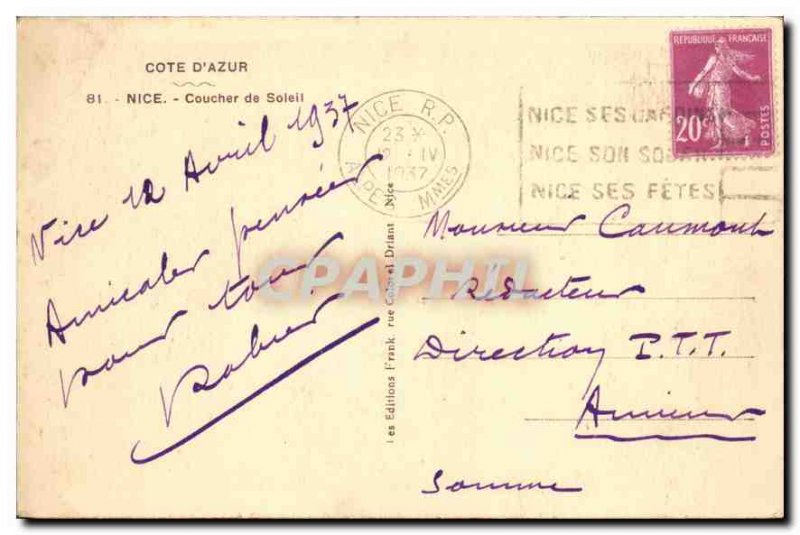 COTE D'AZUR
81. - NICE. - Coucher de Soleil
Nice 12 Avril 1937
Amicales pensées
pour tous
NICE R.P.
23 X
12 IV
1937
ALPES MMES
REPUBLIQUE FRANÇAISE
20c
POSTES
NICE SES JARDINS
NICE SON SOLEIL
NICE SES FÊTES
Monsieur Caumont
Rédacteur
Direction P.T.T.
Amiens
Somme
Les Editions Frank, rue Colonel Driant Nice
CPAPHIL